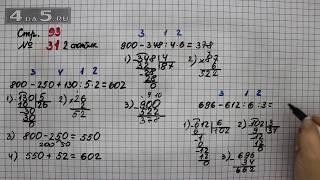 Стр. 93
№ 31 2 столбик
3 4 1 2
800 - 250 + 130 : 5 · 2 = 602
1) 130 | 5
10 | 26
30
30
0
2) × 26
2
52
3) 800 - 250 = 550
4) 550 + 52 = 602
3 1 2
900 - 348 : 4 · 6 = 378
1) 348 | 4
32 | 87
28
28
0
2) × 87
6
522
3) 900
522
378
3 1 2
696 - 612 : 6 : 3 =
1) 612 | 6
6 | 102
12
12
0
2) 102 | 3
9 | 34
12
12
0
3) 696
34
662